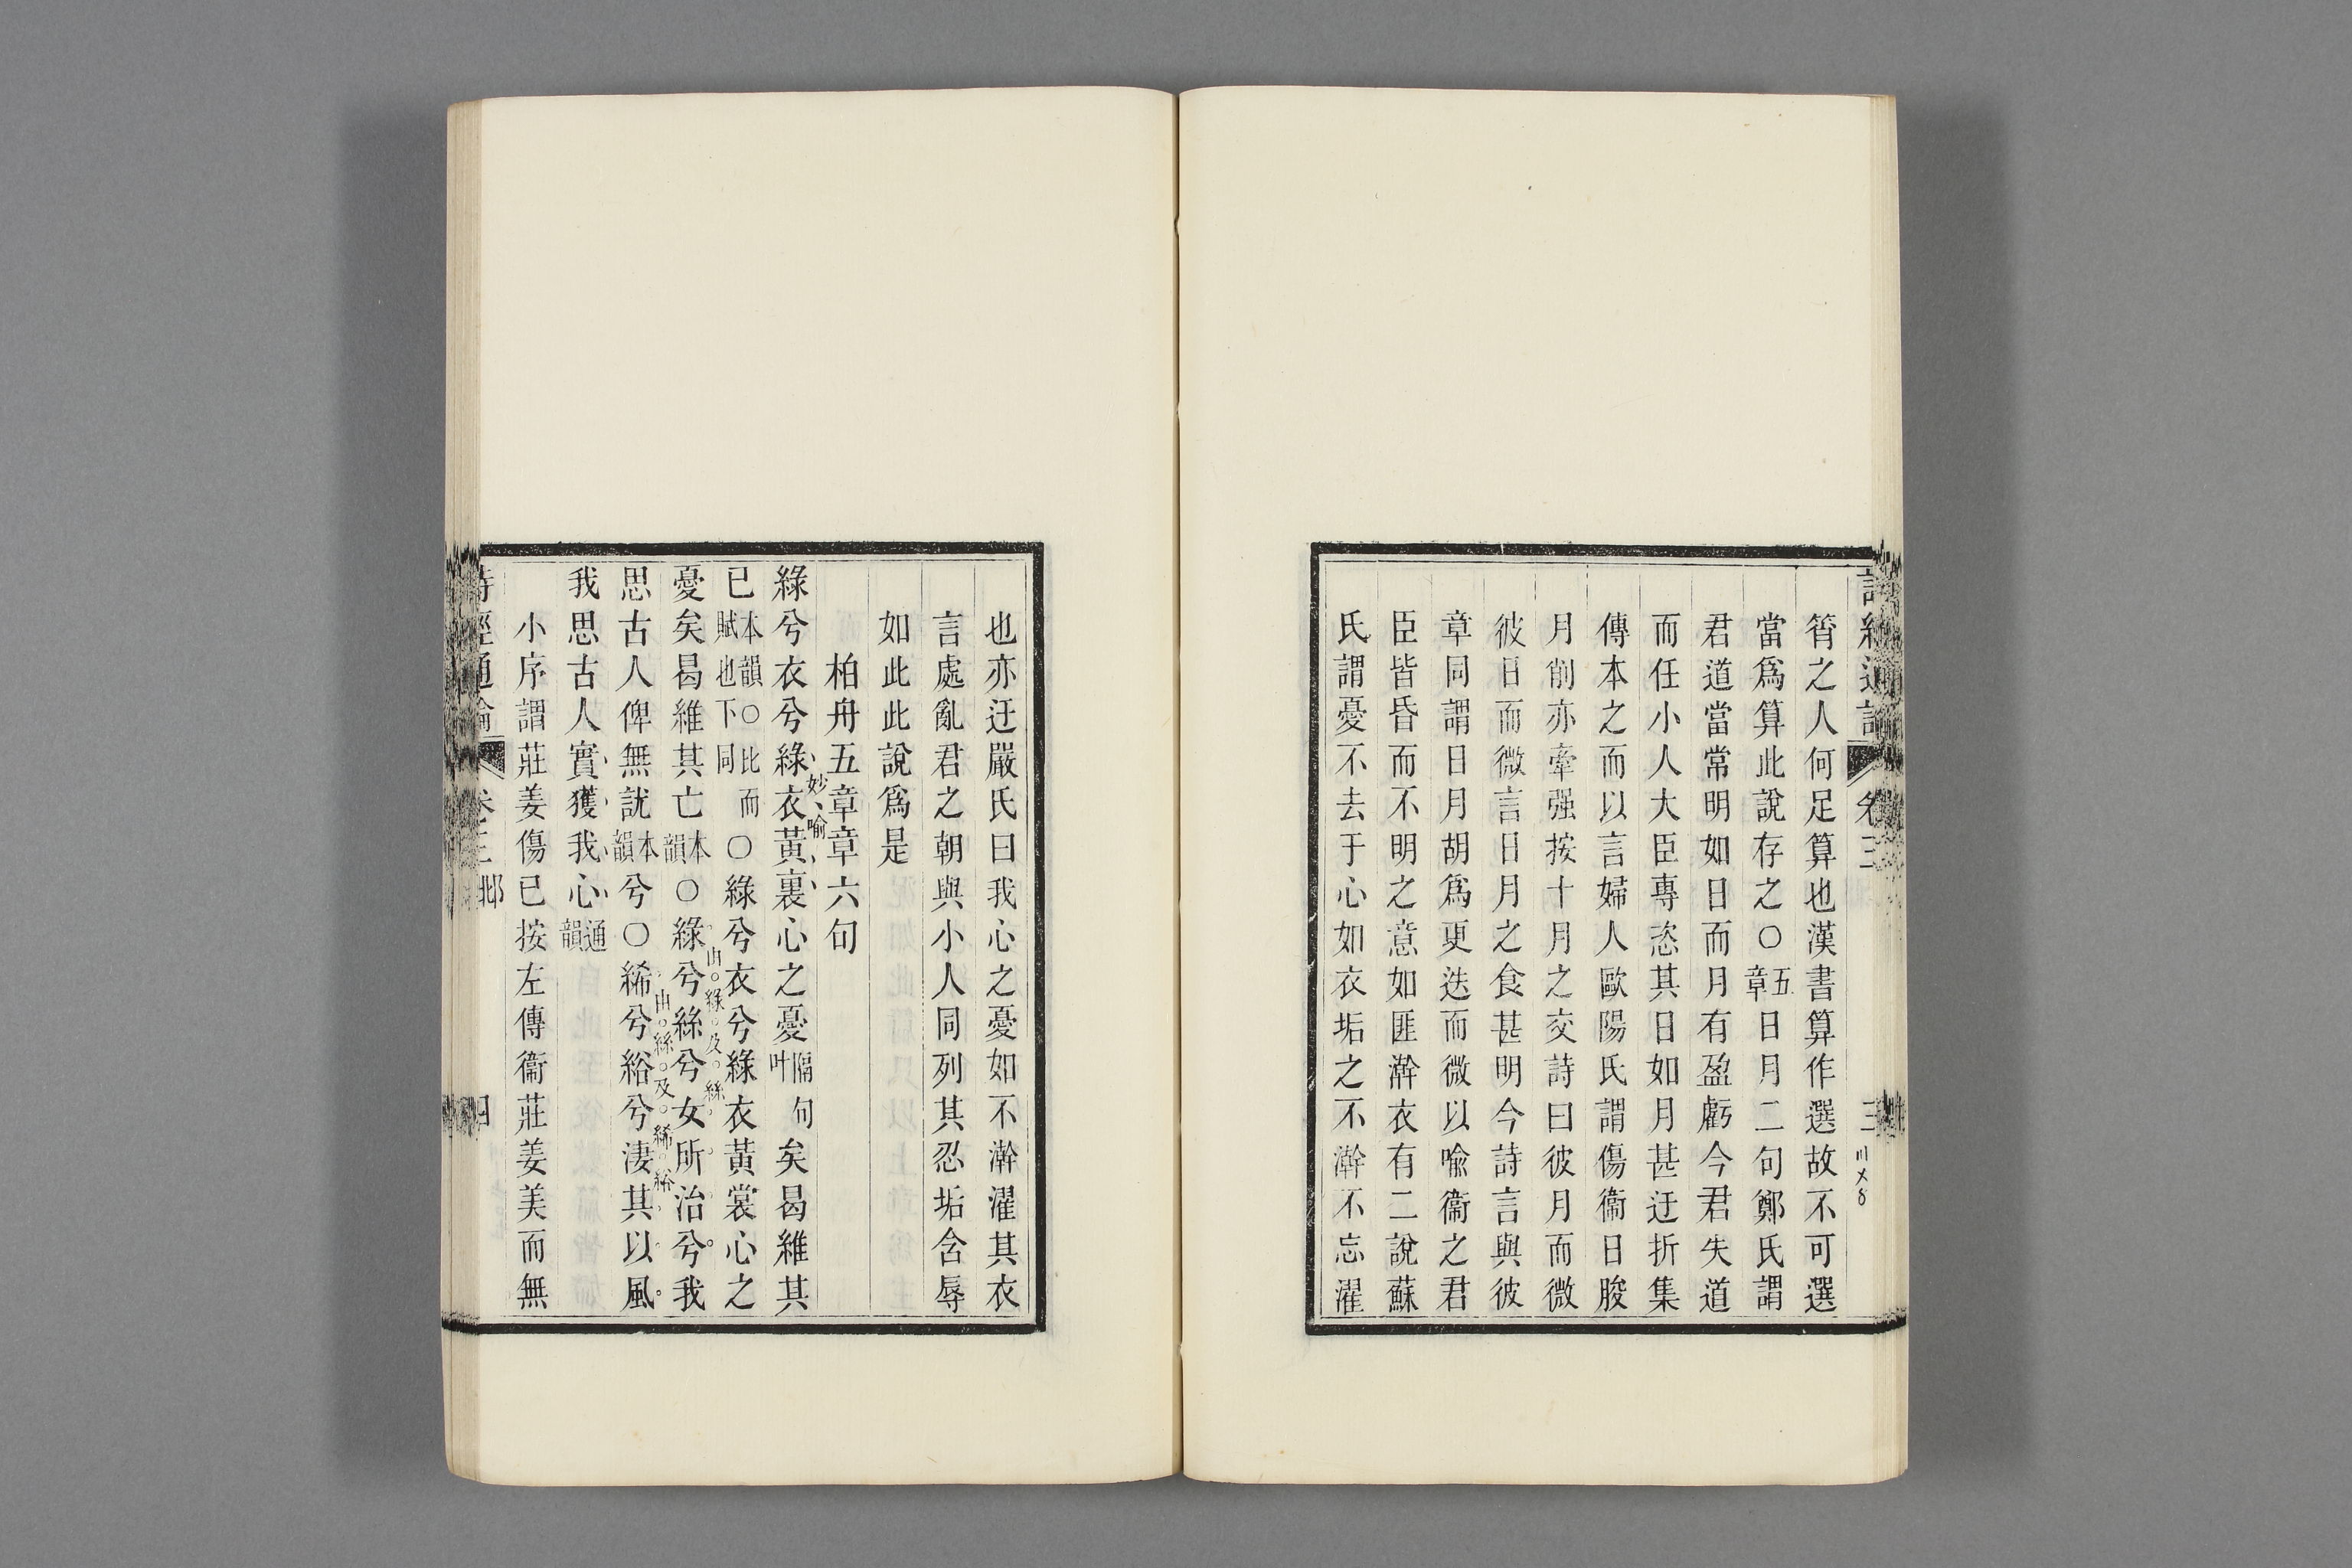 筲之人何足算也漢書算作選故不可選
當爲算此說存之〇五章日月二句鄭氏謂
君道當常明如日而月有盈虧今君失道
而任小人大臣專恣其日如月甚迂折集
傳本之而以言婦人歐陽氏謂傷衞日朘
月削亦牽强按十月之交詩曰彼月而微
彼日而微言日月之食甚明今詩言與彼
章同謂日月胡爲更迭而微以喩衞之君
臣皆昏而不明之意如匪澣衣有二說蘇
氏謂憂不去于心如衣垢之不澣不忘濯
也亦迂嚴氏曰我心之憂如不澣濯其衣
言處亂君之朝與小人同列其忍垢含辱
如此此說爲是
柏舟五章章六句
妙喻
綠兮衣兮綠衣黃裏心之憂隔句叶矣曷維其
已本韻〇比而賦也下同〇綠兮衣兮綠衣黃裳心之
由綠及絲
憂矣曷維其亡本韻〇綠兮絲兮女所治兮我
由絲及絺綌
思古人俾無訧本韻兮〇絺兮綌兮淒其以風
我思古人實獲我心通韻
小序謂莊姜傷已按左傳衞莊姜美而無
卷三 邶